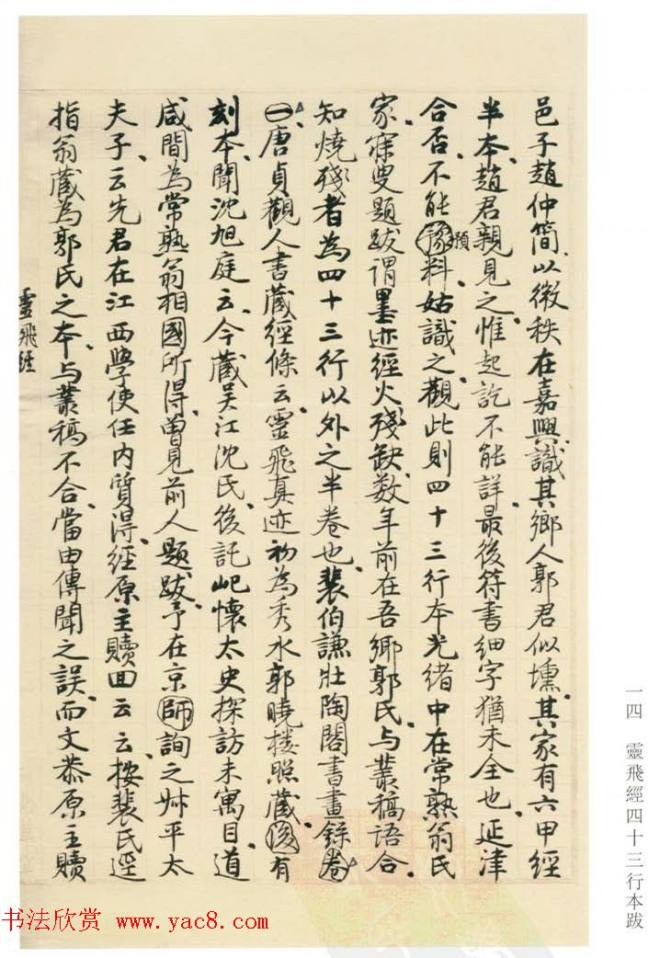 邑子趙仲簡以微秩在嘉興識其鄉人郭君似壎其家有六甲經
半本趙君親見之惟起訖不能詳最後符書細字猶未全也延津
合否不能豫料姑識之觀此則四十三行本光緒中在常熟翁氏
預
家寐叟題跋謂墨迹經火殘缺数年前在吾鄉郭氏与叢稿語合
知燒殘者為四十三行以外之半卷也裴伯謙壯陶閣書畫錄卷
一唐貞觀人書藏經條云靈飛真迹初為秀水郭曉樓照藏後有
刻本聞沈旭庭云今藏吴江沈氏後託屺懷太史探訪未寓目道
咸間為常熟翁相國所得曽見前人題跋予在京師詢之叔平太
夫子云先君在江西學使任内質得經原主贖回云云按裴氏逕
指翁藏為郭氏之本与叢稿不合當由傳聞之誤而文恭原主贖
靈飛經
一四 靈飛經四十三行本跋
书法欣赏 www.yac8.com